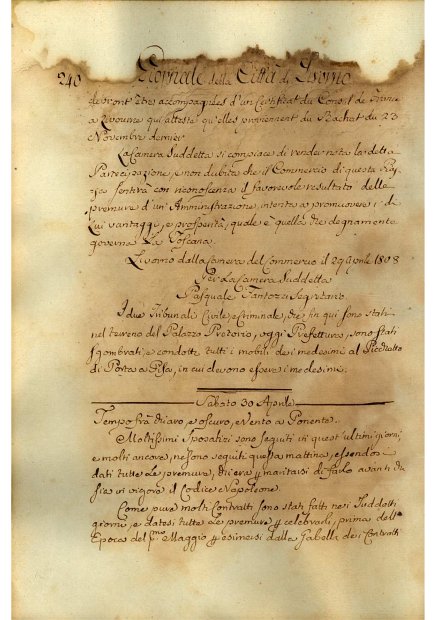 240 Giornale della Città di Livorno
devront êtres accompagnées d'un Certificat du Consul de France
a Livourne qui atteste qu'elles proviennent du Rachat du 23
Novembre dernier
La Camera Suddetta si compiace di render nota la detta
Partecipazione, e non dubita che il Commercio di questa
sentirà con riconoscenza il favorevole resultato delle
premure d'un' Amministrazione, intenta a promuovere i di
Lui vantaggi, e prosperità, quale è quella che degnamente
governa La Toscana.
Livorno dalla Camera del Commercio il 29 Aprile 1808
Per La Camera Suddetta
Pasquale Segretario
I due Tribunali Civile e Criminale, che fin qui sono stati
nel terreno del Palazzo Pretorio, oggi Prefettura, sono stati
sgombrati, e condotti tutti i mobili dei medesimi al
di Porta a Pisa, in cui devono essere i medesimi.
Sabato 30 Aprile
Tempo frà chiaro, e oscuro, e Vento a Ponente.
Moltissimi Sposalizi sono seguiti in quest'ultimi giorni,
e molti ancora, ne sono seguiti questa mattina, essendosi
dati tutte Le premure, chi era p maritarsi di farlo avanti di
in vigore il Codice Napoleone
Come pure molti Contratti sono stati fatti nei Suddetti
giorni, e datosi tutte Le premure p celebrarli, prima dell'
Epoca del p.mo Maggio p esimersi dalla Gabella dei Contratti